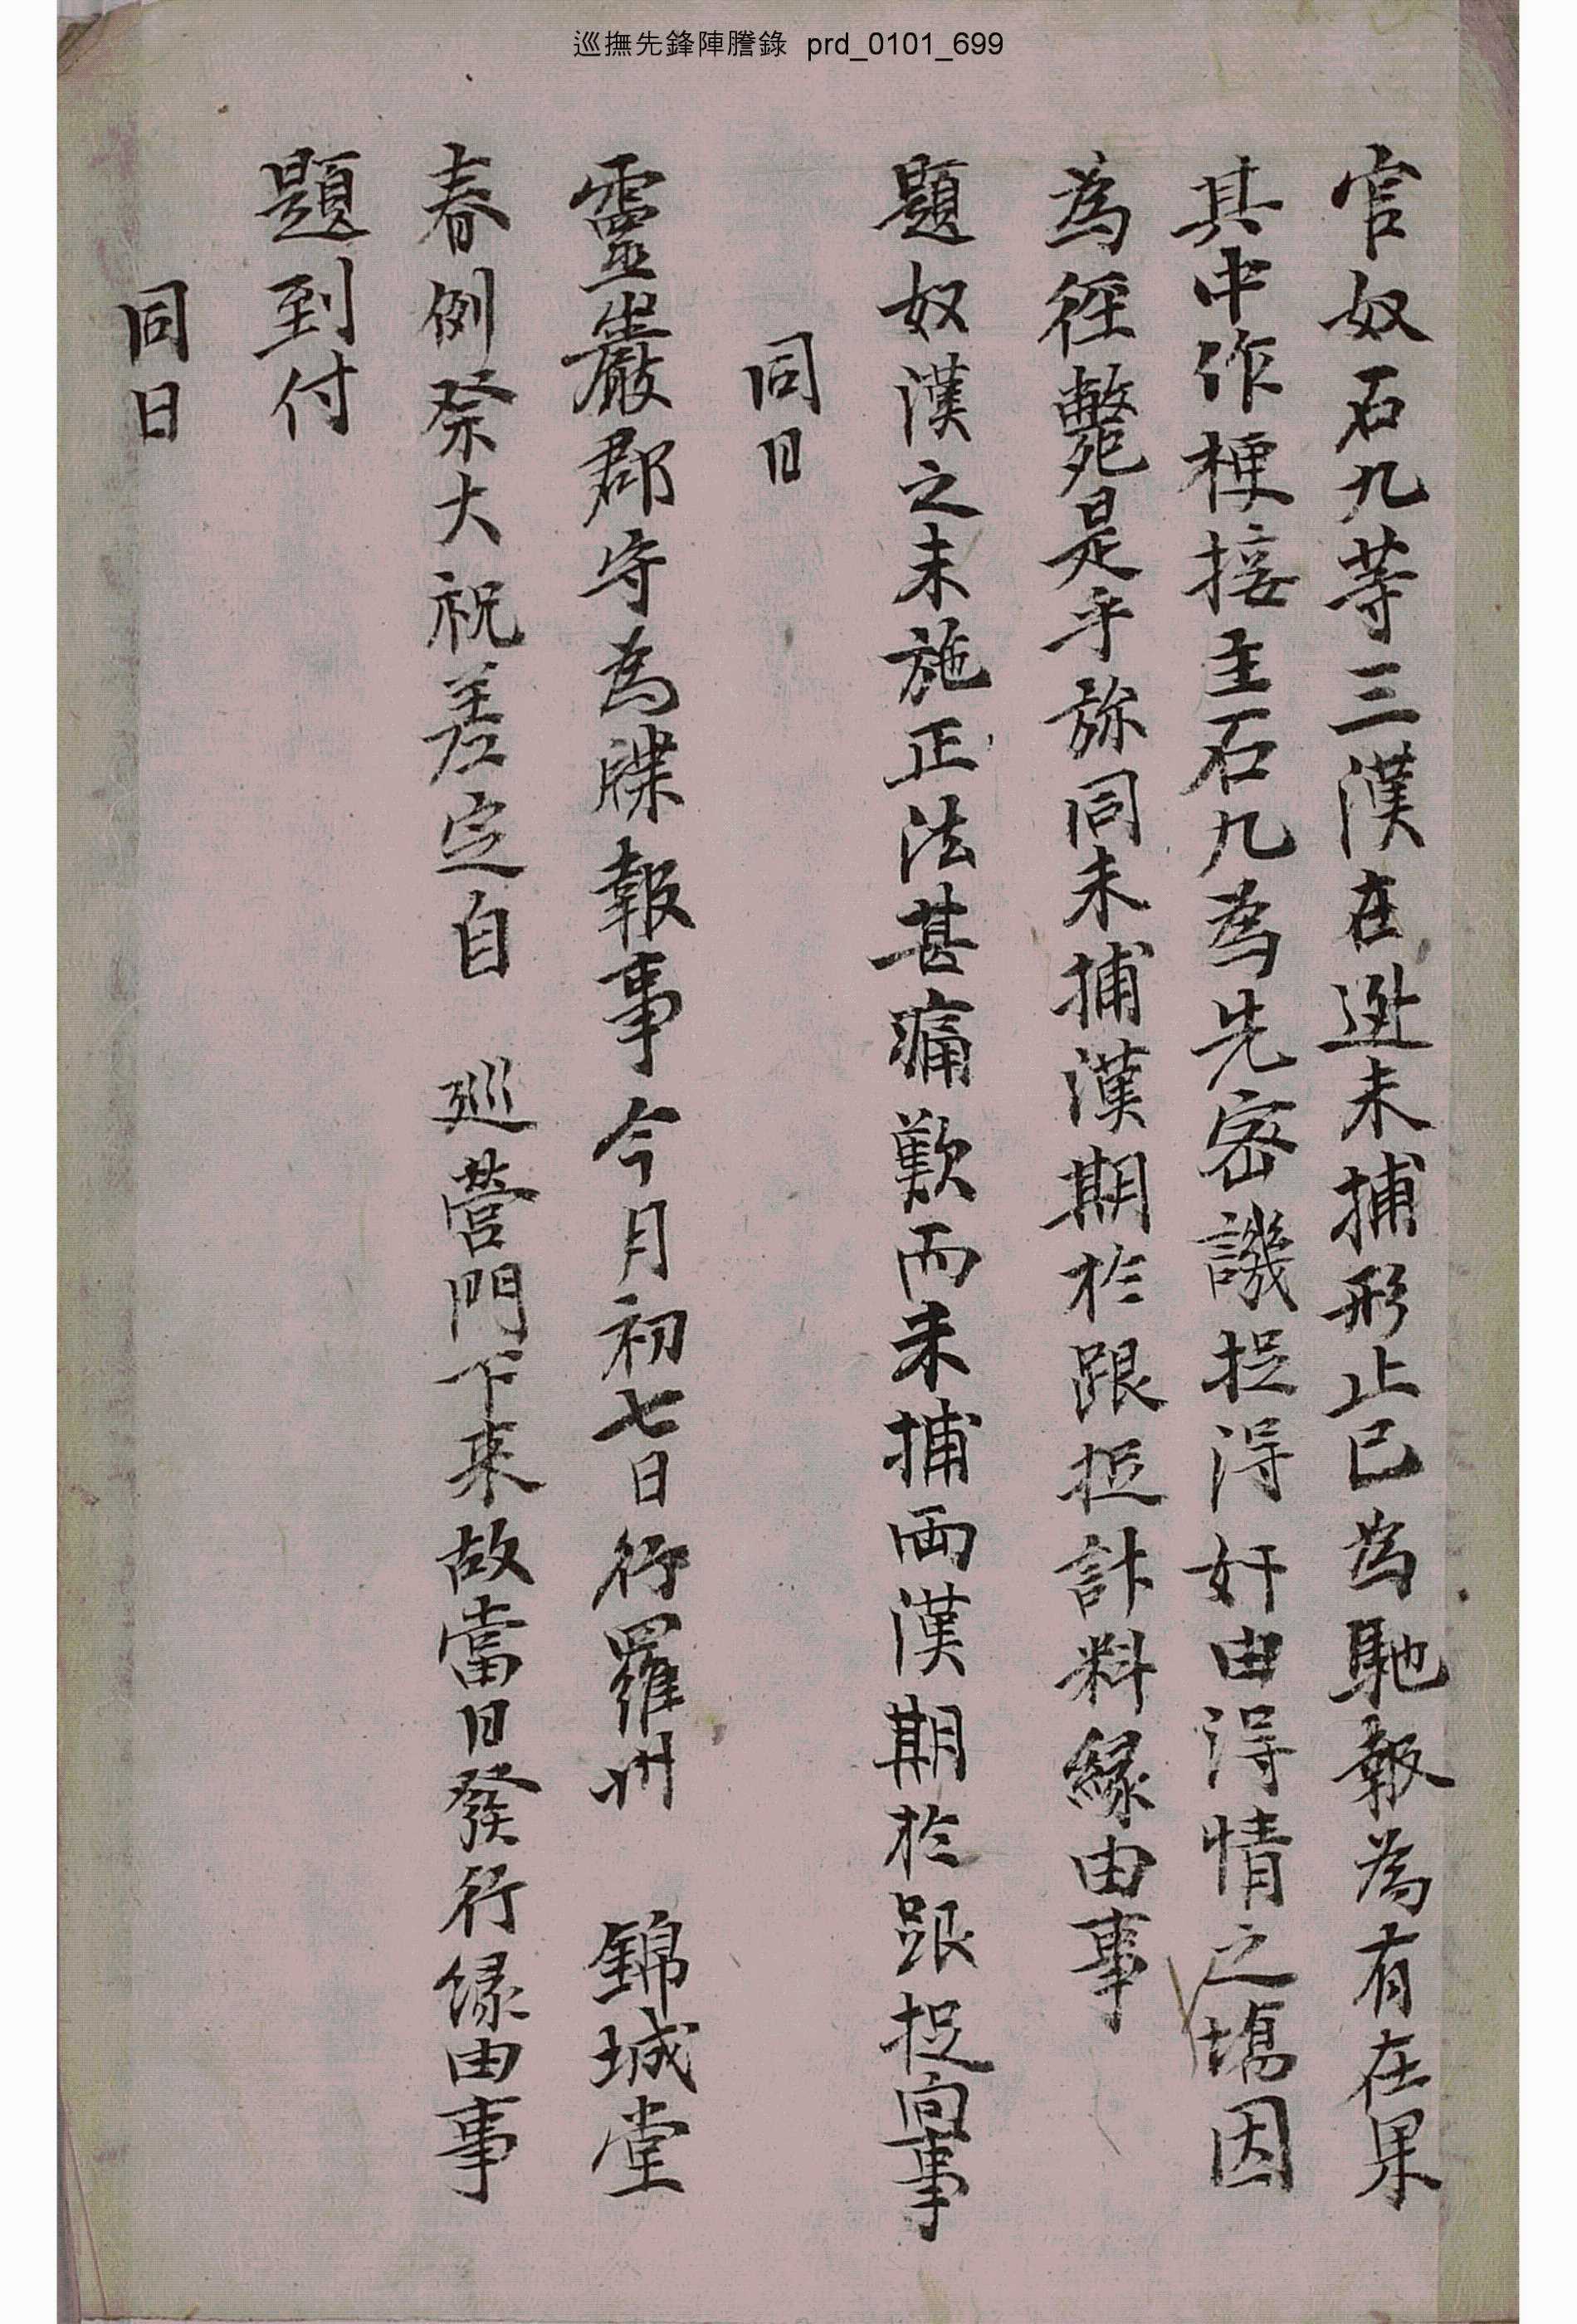 巡撫先鋒陣謄錄 prd_0101_699
官奴石九等三漢在逃未捕形止已為馳報為有在果
其中作梗接主石九為先密譏捉得奸由得情之場因
為徑斃是乎旀同未捕漢期於跟捉計料緣由事
題奴漢之未施正法甚痛歎而未捕両漢期於跟捉向事
同日
靈巖郡守為牒報事今月初七日行羅州 錦城堂
春例祭大祝差定自 巡營門下来故當日發行緣由事
題到付
同日